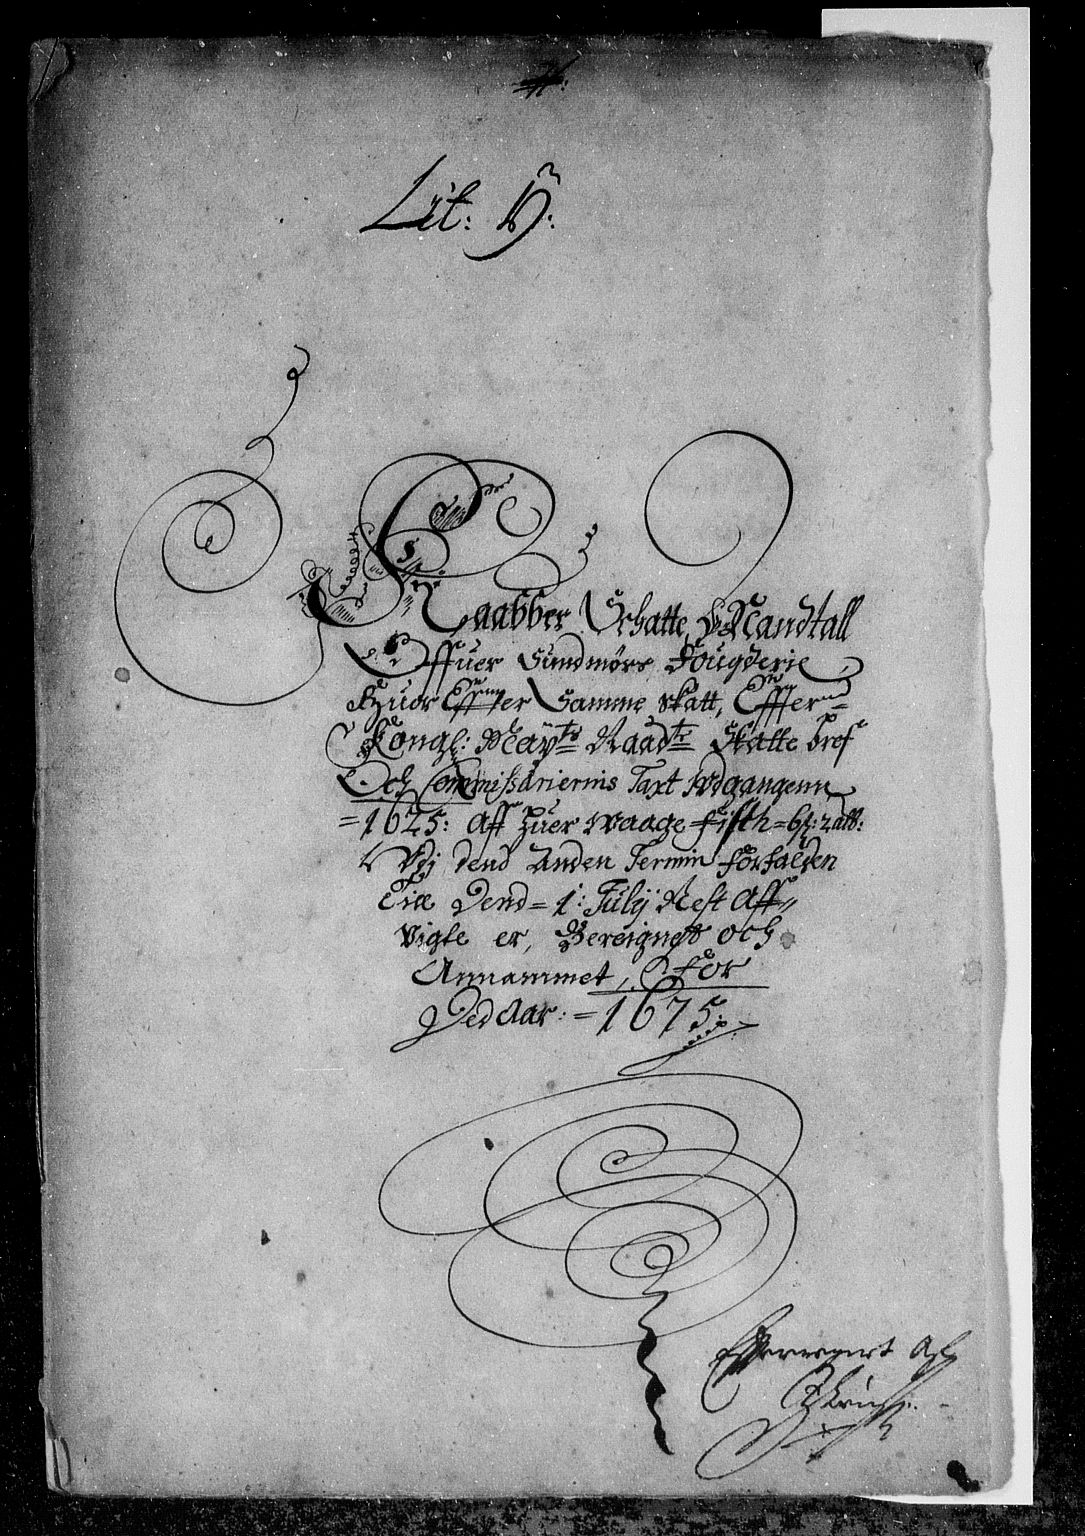 Lit: D:
Kaabber Schatte Mandtall
Offuer Sundmørs Fougderie
Huor Effter Samme skatt, Effter
Kongl: Mayts Naadts Skatte bref
Och Commissariernis Taxt Udgangenn
1675: Aff huer waage fisch = 6 s: 2 alb:
Udj dend Anden Termin forfalden
Till Dend = 1: Julij Nest Aff
Vigte er, Bereignet och
Annammet, for
Ded Aar: = 1675: